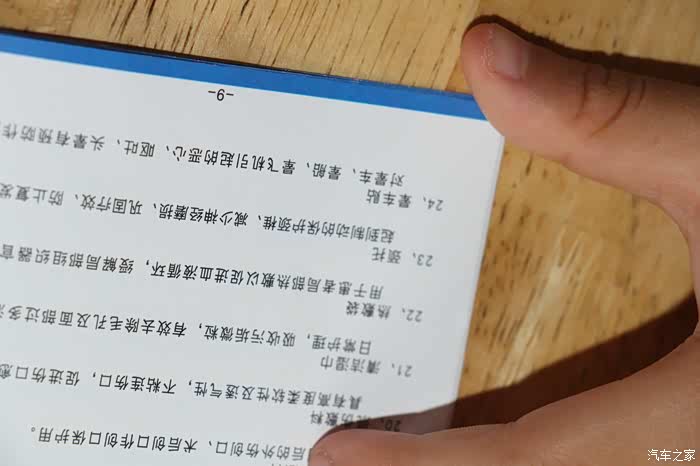 后的外伤创口、术后创口作创口保护用。
20、 伤敷料
具有高度柔软性及透气性，不粘连伤口，促进伤口愈
21、清洁湿巾
日常护理，吸收污垢微粒，有效去除毛孔及面部过多
22、热敷袋
用于患者局部热敷以促进血液循环，缓解局部组织器官
23、颈托
起到制动的保护颈椎，减少神经磨损，巩固疗效，防止复发
24、晕车贴
对晕车、晕船、晕飞机引起的恶心、呕吐、头晕有预防作
-6-
汽车之家